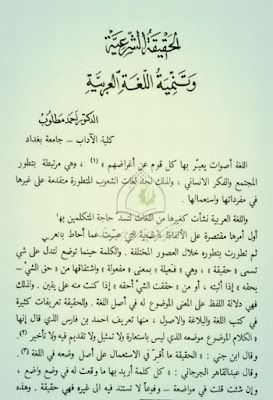 الحقيقة الشرعية
وتنمية اللغة العربية
الدكتور أحمد مطلوب
كلية الآداب – جامعة بغداد
اللغة أصوات يعبّر بها كل قوم عن أغراضهم » (١) ، وهي مرتبطة بتطور
المجتمع والفكر الانساني ، ولذلك نجد لغات الشعوب المتطورة متقدمة على غيرها
في مفرداتها واستعمالها .
واللغة العربية نشأت كغيرها من اللغات لتسد حاجة المتكلمين بها
أول أمرها مقتصرة على الألفاظ الوضعية التي عبّرت عما أحاط بالعربي
ثم تطورت بتطوره خلال العصور المختلفة . والكلمة حينما توضع لتدل على شي
تسمى « حقيقة » ، وهي « فعيلة » بمعنى « مفعولة » واشتقاقها من « حق الشيَ –
يحقه » إذا أثبته ، أو من « حققت الشيَ أحقه » إذا كنت منه على يقين . ولذلك
فهي دلالة اللفظ على المعنى الموضوع له في أصل اللغة . وللحقيقة تعريفات كثيرة
في كتب اللغة والبلاغة والاصول ، منها تعريف أحمد بن فارس الذي قال إنها
« الكلام الموضوع موضعه الذي ليس باستعارة ولا تمثيل ولا تقديم فيه ولا تأخير (٢)
وقال ابن جني : « الحقيقة ما أقرّ في الاستعمال على أصل وضعه في اللغة (٣)
وقال عبدالقاهر الجرجاني : « كل كلمة أريد بها ما وقعت له في وضع واضع ،
وإن شئت قلت في مواضعة – وقوعاً لا تستند فيه الى غيره فهي حقيقة . وهذه